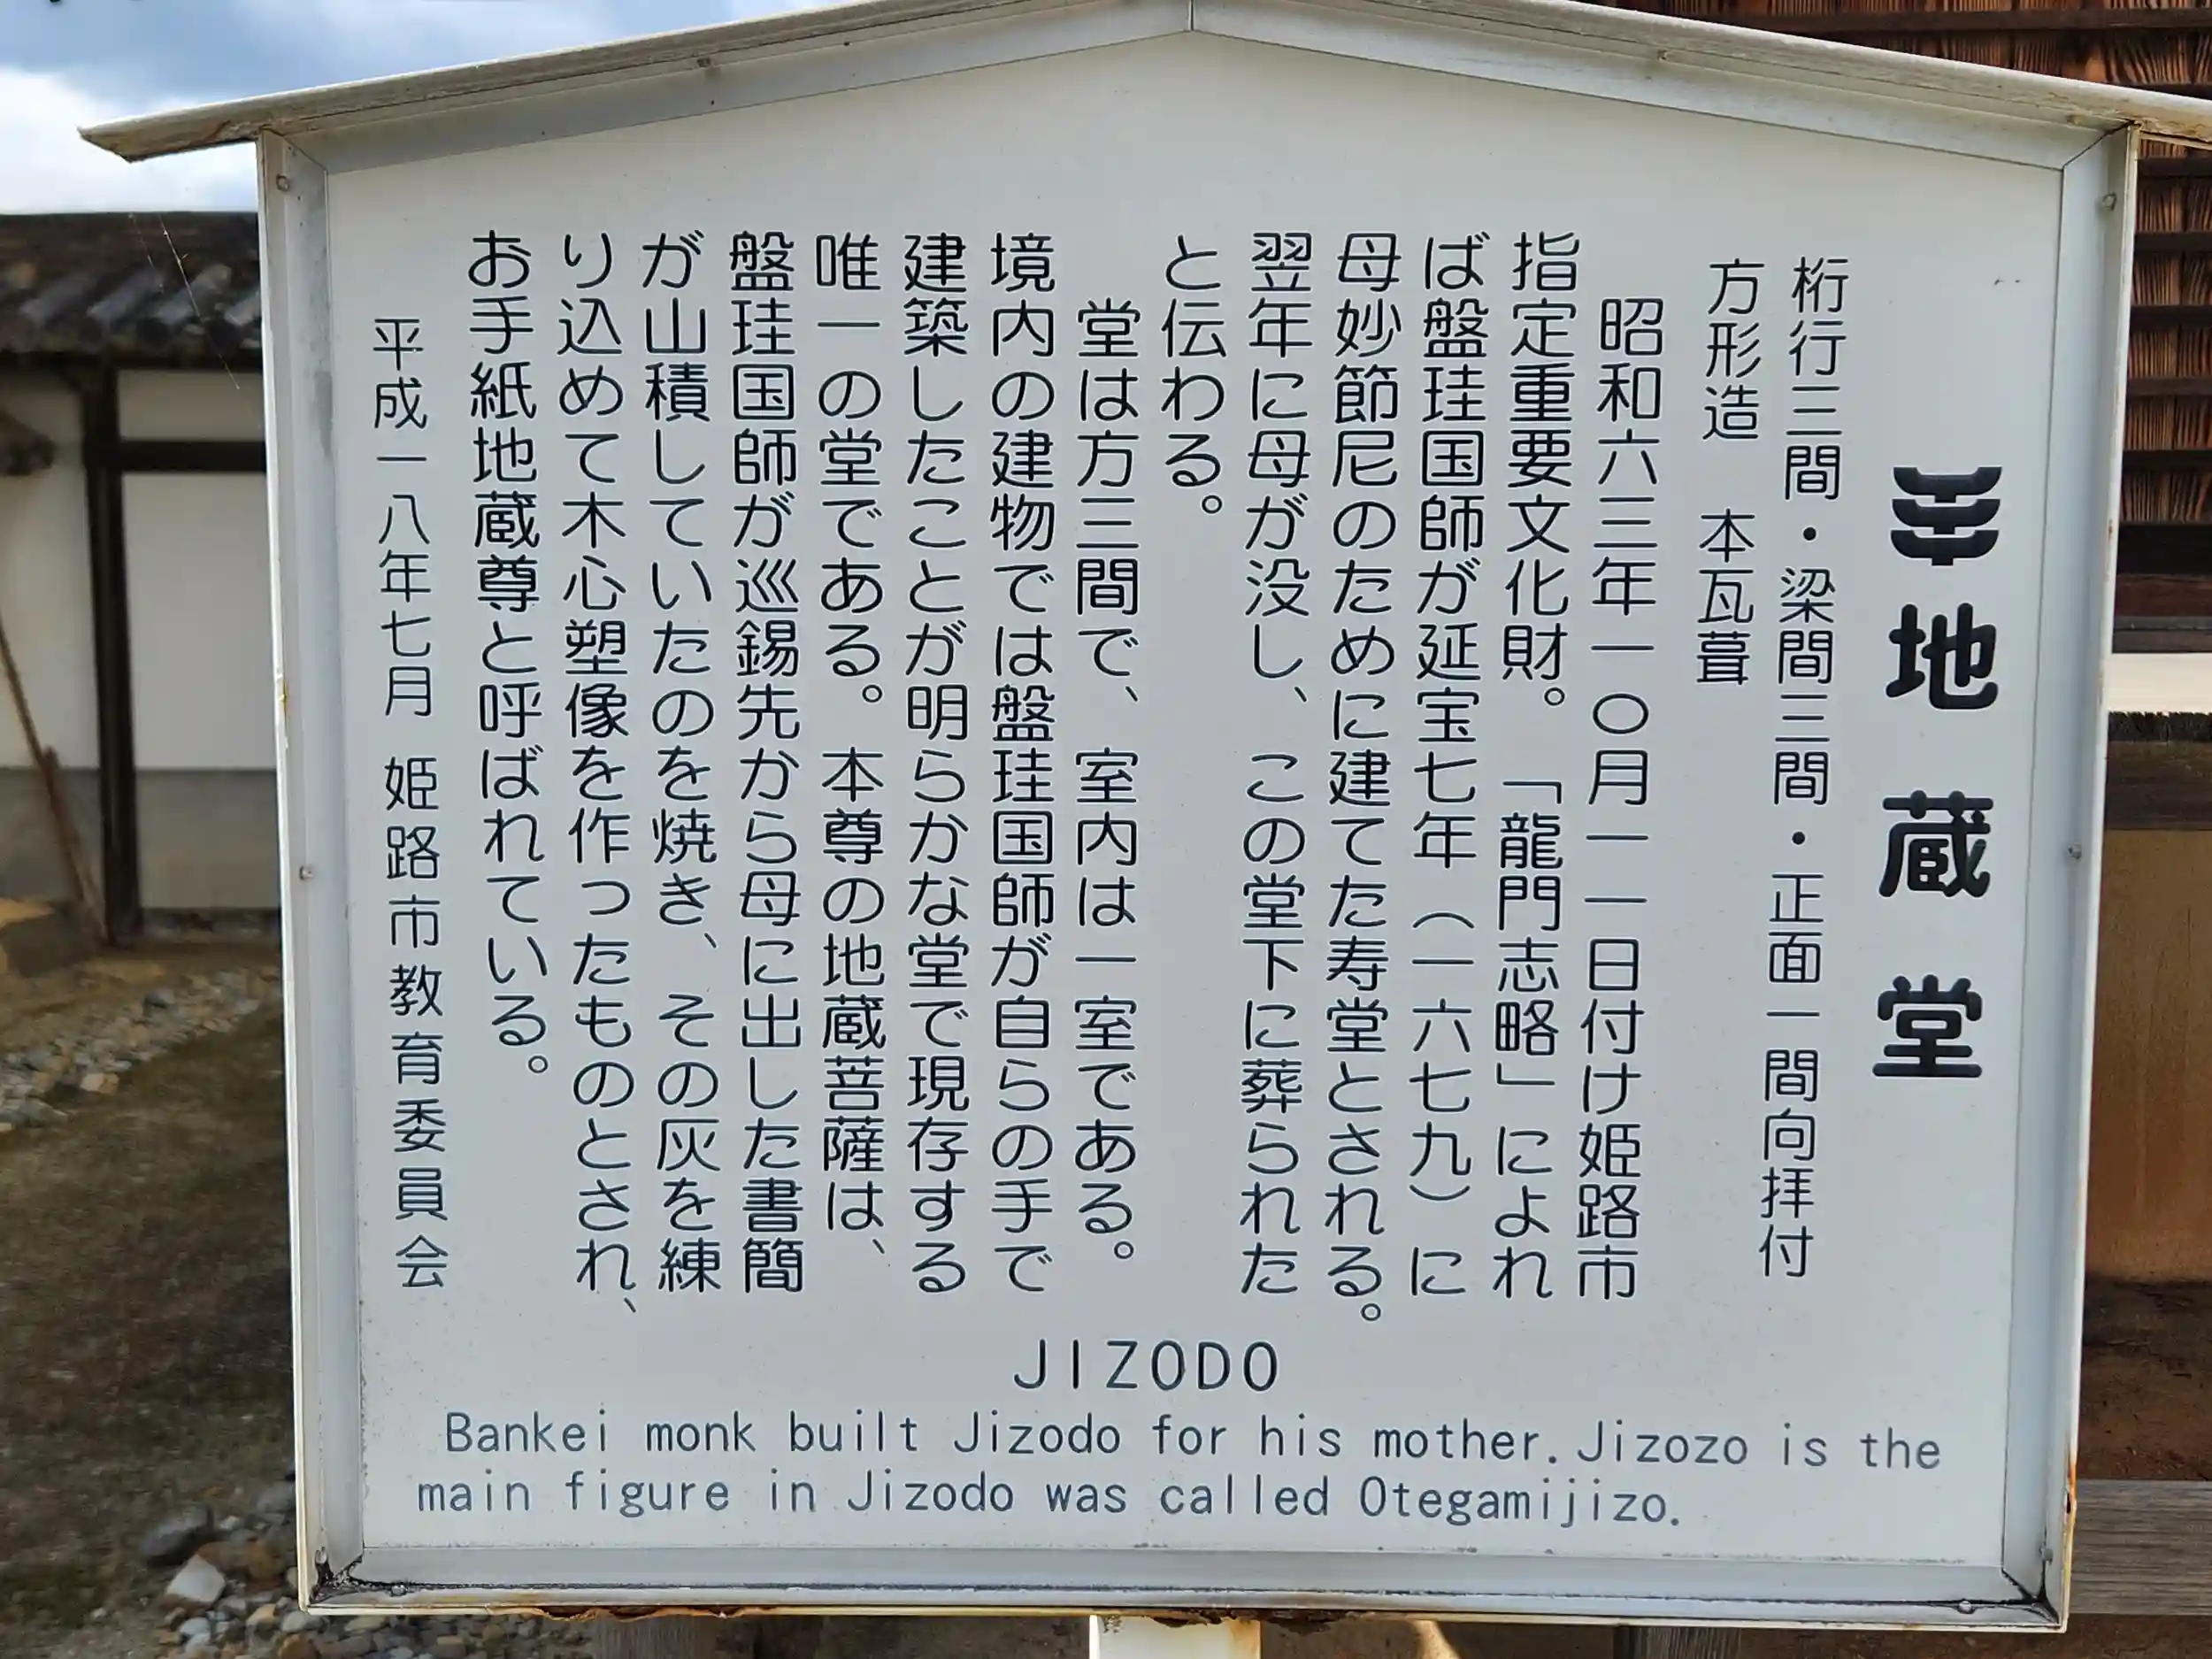 地蔵堂
桁行三間・梁間三間・正面一間向拝付
方形造　本瓦葺
昭和六三年一〇月一一日付け姫路市
指定重要文化財。「龍門志略」によれ
ば盤珪国師が延宝七年（一六七九）に
母妙節尼のために建てた寿堂とされる。
翌年に母が没し、この堂下に葬られた
と伝わる。
堂は方三間で、室内は一室である。
境内の建物では盤珪国師が自らの手で
建築したことが明らかな堂で現存する
唯一の堂である。本尊の地蔵菩薩は、
盤珪国師が巡錫先から母に出した書簡
が山積していたのを焼き、その灰を練
り込めて木心塑像を作ったものとされ、
お手紙地蔵尊と呼ばれている。
平成一八年七月　姫路市教育委員会
JIZODO
Bankei monk built Jizodo for his mother.Jizozo is the
main figure in Jizodo was called Otegamijizo.